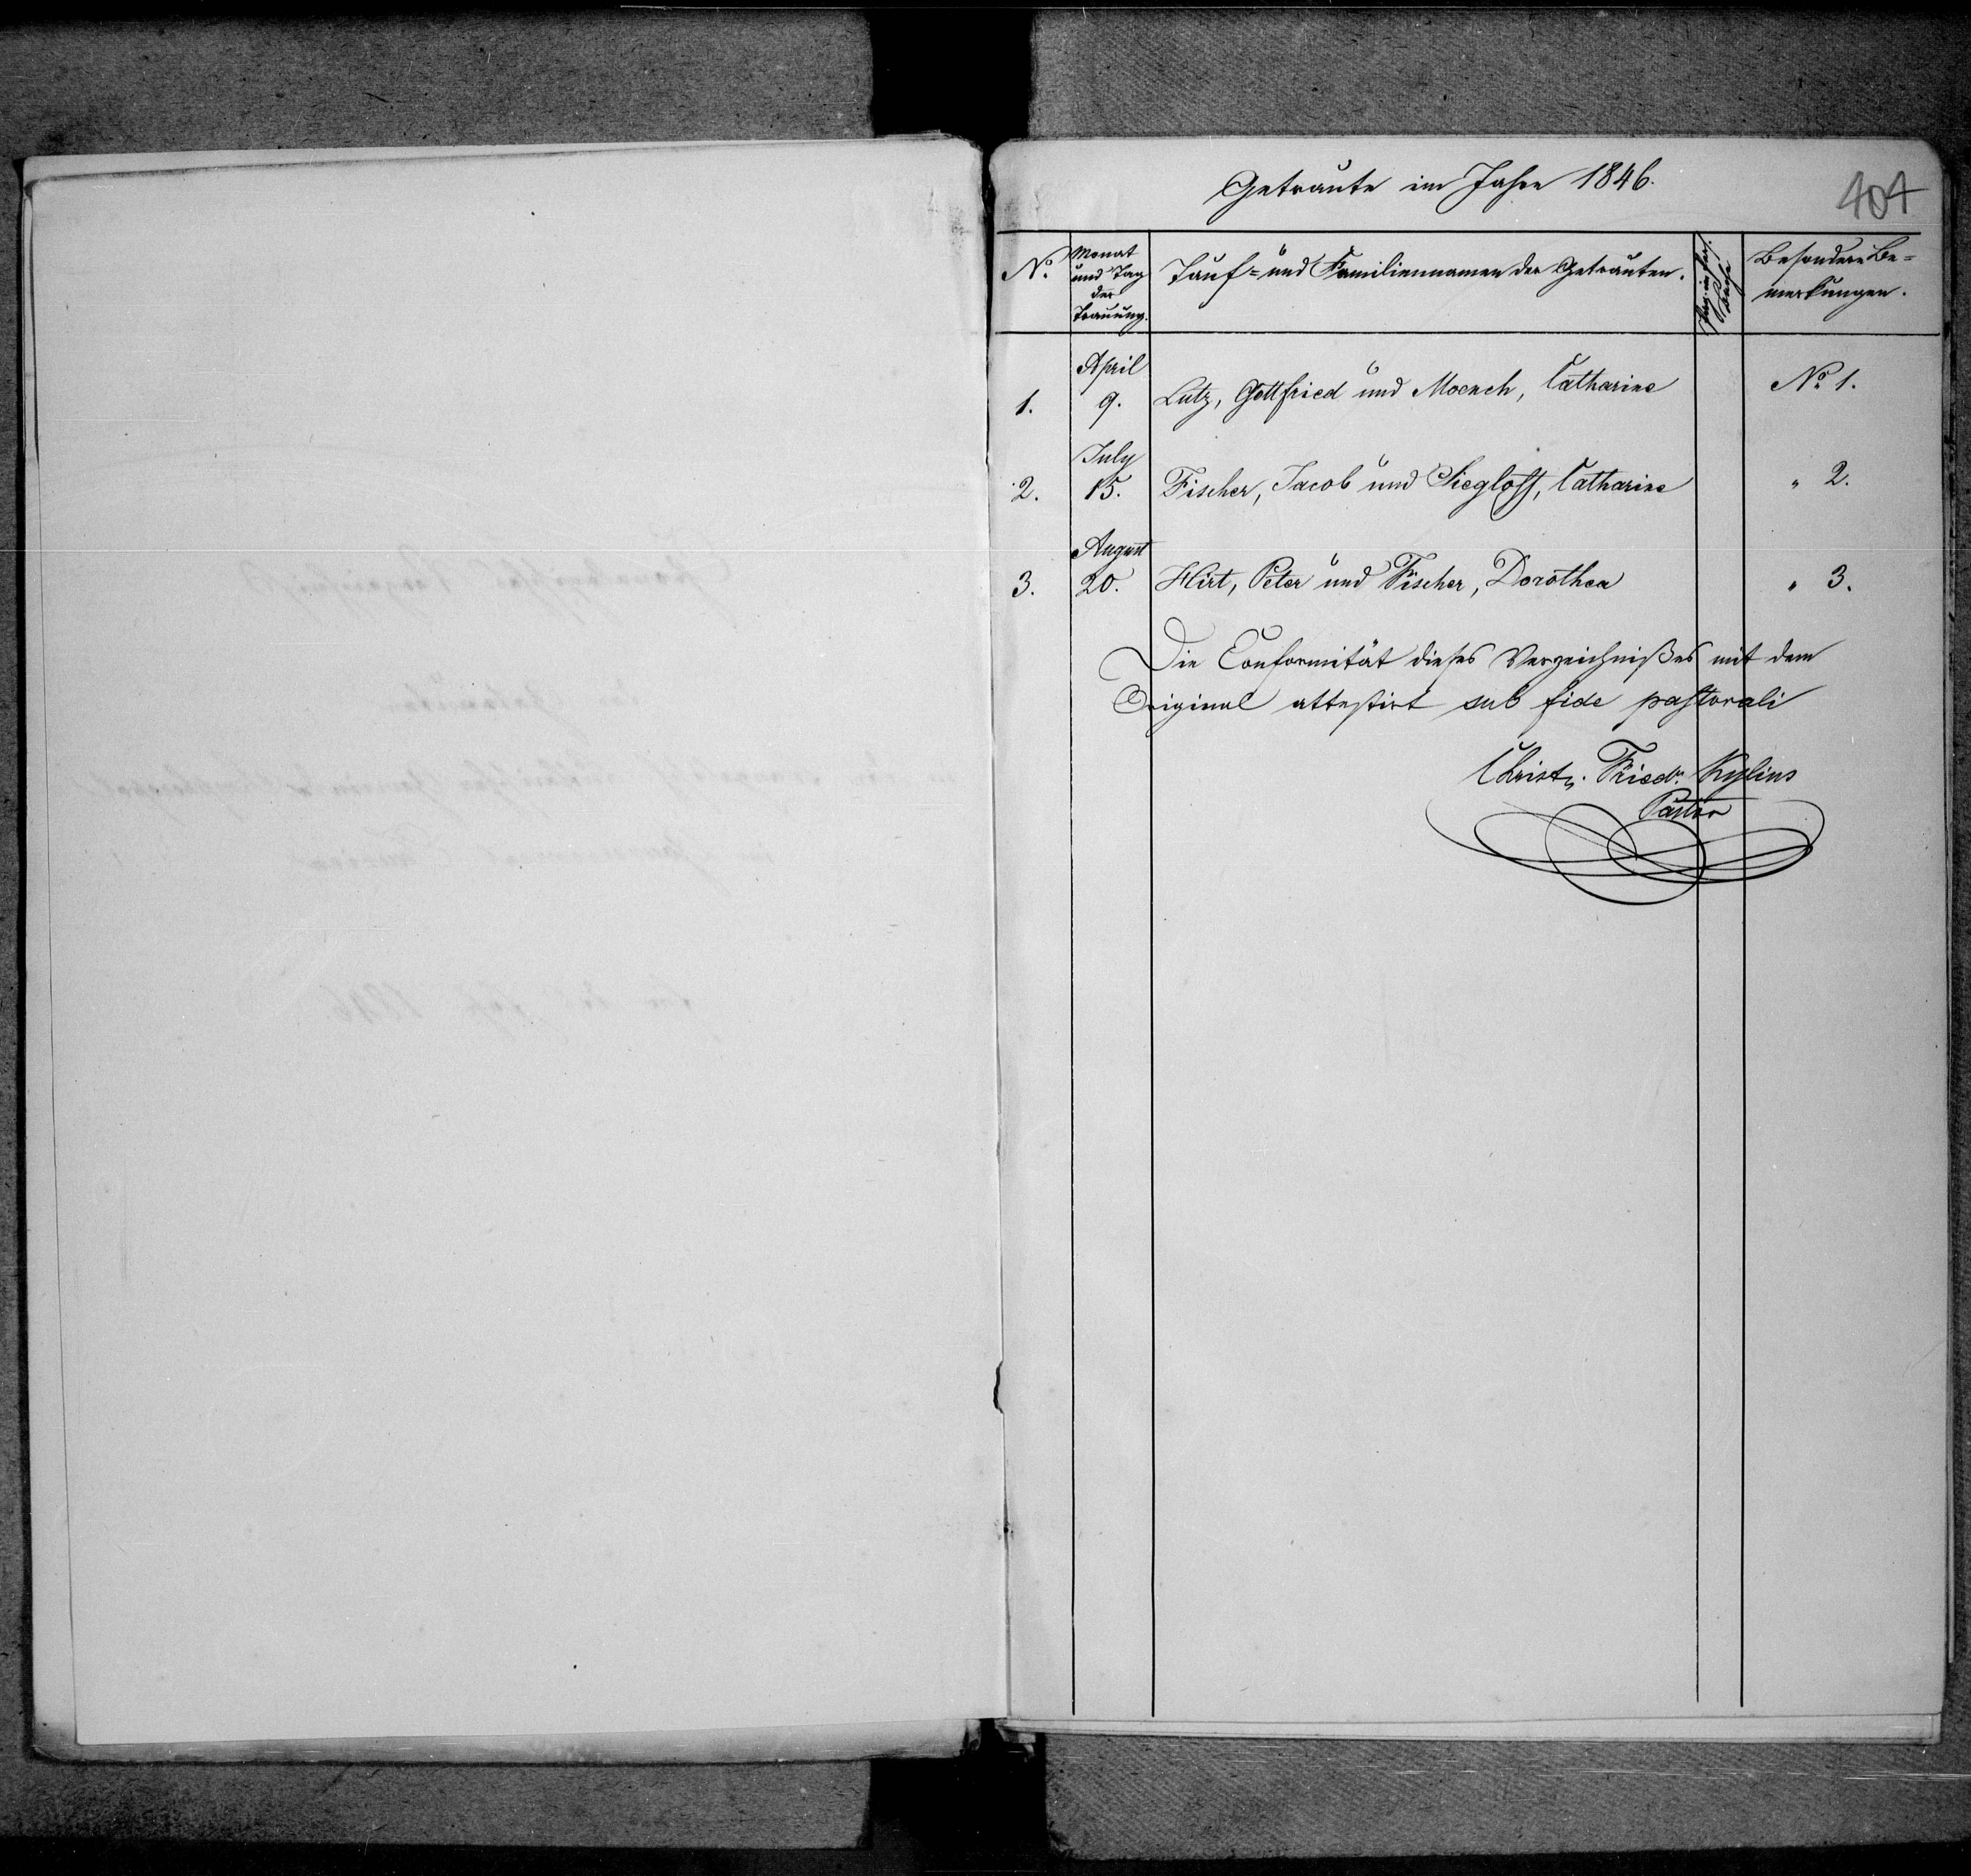 Getraute im Jahre 1846.
404
No. Monat und Tag der Trauung. Tauf= und Familiennamen der Getrauten. Besondere Be=
merkungen.
April
1. 9. Lutz, Gottfried und Moench, Catharine No 1.
July
2. 15. Fischer, Jacob und Siegloff, Catharine " 2.
August
3. 20. Hirt, Peter und Fischer, Dorothea " 3.
Die Conformität dieses Verzeichnißes mit dem
Original attestirt sub fide pastorali
Christn. Friedr. Kylius
Pastor